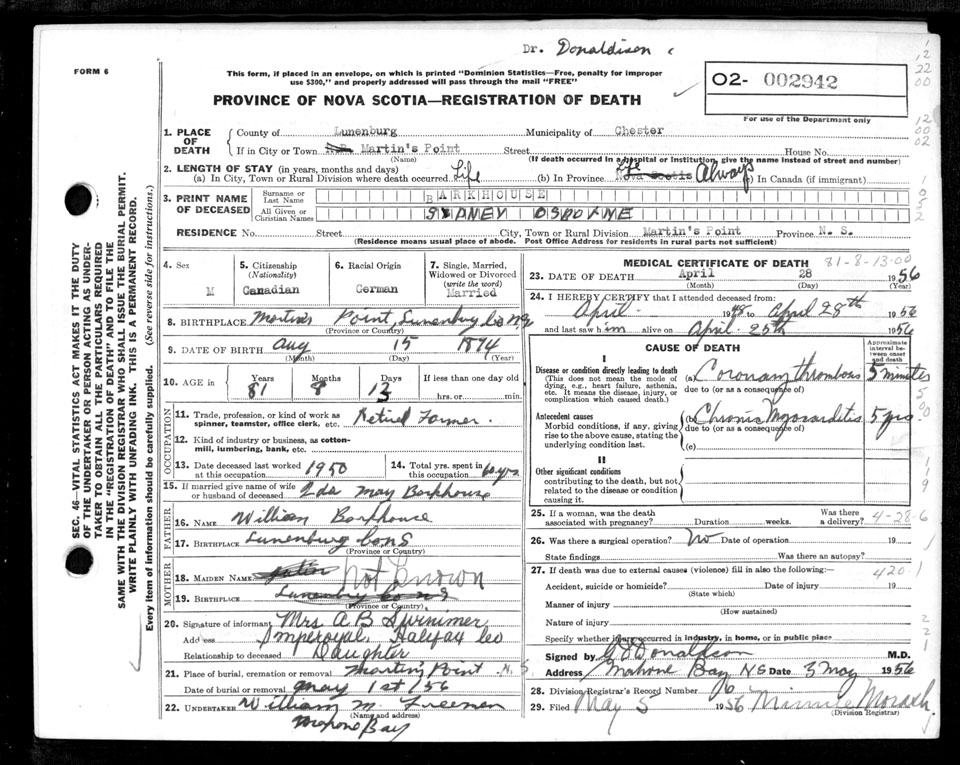 Dr. Donaldison
FORM 6
This form, if placed in an envelope, on which is printed "Dominion Statistics—Free, penalty for improper
use $300," and properly addressed will pass through the mail "FREE"
O2- 002942
For use of the Department only
PROVINCE OF NOVA SCOTIA—REGISTRATION OF DEATH
1. PLACE OF DEATH
County of Lunenburg Municipality of Chester
If in City or Town Martin's Point Street House No.
(Name) (If death occurred in a hospital or Institution, give the name instead of street and number)
2. LENGTH OF STAY (in years, months and days)
(a) In City, Town or Rural Division where death occurred Life (b) In Province Life Nova Scotia Always (c) In Canada (if immigrant)
3. PRINT NAME OF DECEASED
Surname or Last Name BARKHOUSE
All Given or Christian Names
RESIDENCE No. Street City, Town or Rural Division Martin's Point Province N. S.
(Residence means usual place of abode. Post Office Address for residents in rural parts not sufficient)
4. Sex M
5. Citizenship (Nationality) Canadian
6. Racial Origin German
7. Single, Married, Widowed or Divorced (write the word) Married
8. BIRTHPLACE Martins Point, Lunenburg Co N S
(Province or Country)
9. DATE OF BIRTH Aug 15 1874
(Month) (Day) (Year)
10. AGE in Years 81 Months 8 Days 13 If less than one day old hrs. or min.
OCCUPATION
11. Trade, profession, or kind of work as spinner, teamster, office clerk, etc. Retired Farmer.
12. Kind of industry or business, as cotton-mill, lumbering, bank, etc.
13. Date deceased last worked at this occupation 1950
14. Total yrs. spent in this occupation 60 yrs
15. If married give name of wife or husband of deceased Ida May Barkhouse
FATHER
16. NAME William Barkhouse
17. BIRTHPLACE Lunenburg Co N S
(Province or Country)
MOTHER
18. MAIDEN NAME Not Known
19. BIRTHPLACE Lunenburg Co N S
(Province or Country)
20. Signature of informant Mrs A B Swinimer
Address Imperoyal, Halifax Co
Relationship to deceased Daughter
21. Place of burial, cremation or removal Martins Point N. S
Date of burial or removal May 1st / 56
22. UNDERTAKER William M. Freeman
(Name and address)
Mahone Bay
MEDICAL CERTIFICATE OF DEATH 81-8-13-00
23. DATE OF DEATH April 28 1956
(Month) (Day) (Year)
24. I HEREBY CERTIFY that I attended deceased from:
April 1945 to April 28th 1956
and last saw him alive on April 25th 1956
CAUSE OF DEATH
Approximate interval between onset and death
I
Disease or condition directly leading to death
(This does not mean the mode of dying, e.g., heart failure, asthenia, etc. It means the disease, injury, or complication which caused death.)
(a) Coronary thrombosis 5 minutes
due to (or as a consequence of)
Antecedent causes
Morbid conditions, if any, giving rise to the above cause, stating the underlying condition last.
(b) Chronic Myocarditis 5 yrs.
due to (or as a consequence of)
(c)
II
Other significant conditions
contributing to the death, but not related to the disease or condition causing it.
25. If a woman, was the death associated with pregnancy? Duration weeks. Was there a delivery? 4-28-6
26. Was there a surgical operation? No Date of operation 19
State findings Was there an autopsy?
27. If death was due to external causes (violence) fill in also the following:— 420-1
Accident, suicide or homicide? Date of injury 19
(State which)
Manner of injury
(How sustained)
Nature of injury
Specify whether injury occurred in industry, in home, or in public place
Signed by Donaldson M.D.
Address Mahone Bay N S Date 3 May 1956
28. Division Registrar's Record Number
29. Filed May 5 1956 Minnie
(Division Registrar)
SEC. 46—VITAL STATISTICS ACT MAKES IT THE DUTY
OF THE UNDERTAKER OR PERSON ACTING AS UNDER-
TAKER TO OBTAIN ALL THE PARTICULARS REQUIRED
IN THE "REGISTRATION OF DEATH" AND TO FILE THE
SAME WITH THE DIVISION REGISTRAR WHO SHALL ISSUE THE BURIAL PERMIT.
WRITE PLAINLY WITH UNFADING INK. THIS IS A PERMANENT RECORD.
Every item of information should be carefully supplied. (See reverse side for instructions.)